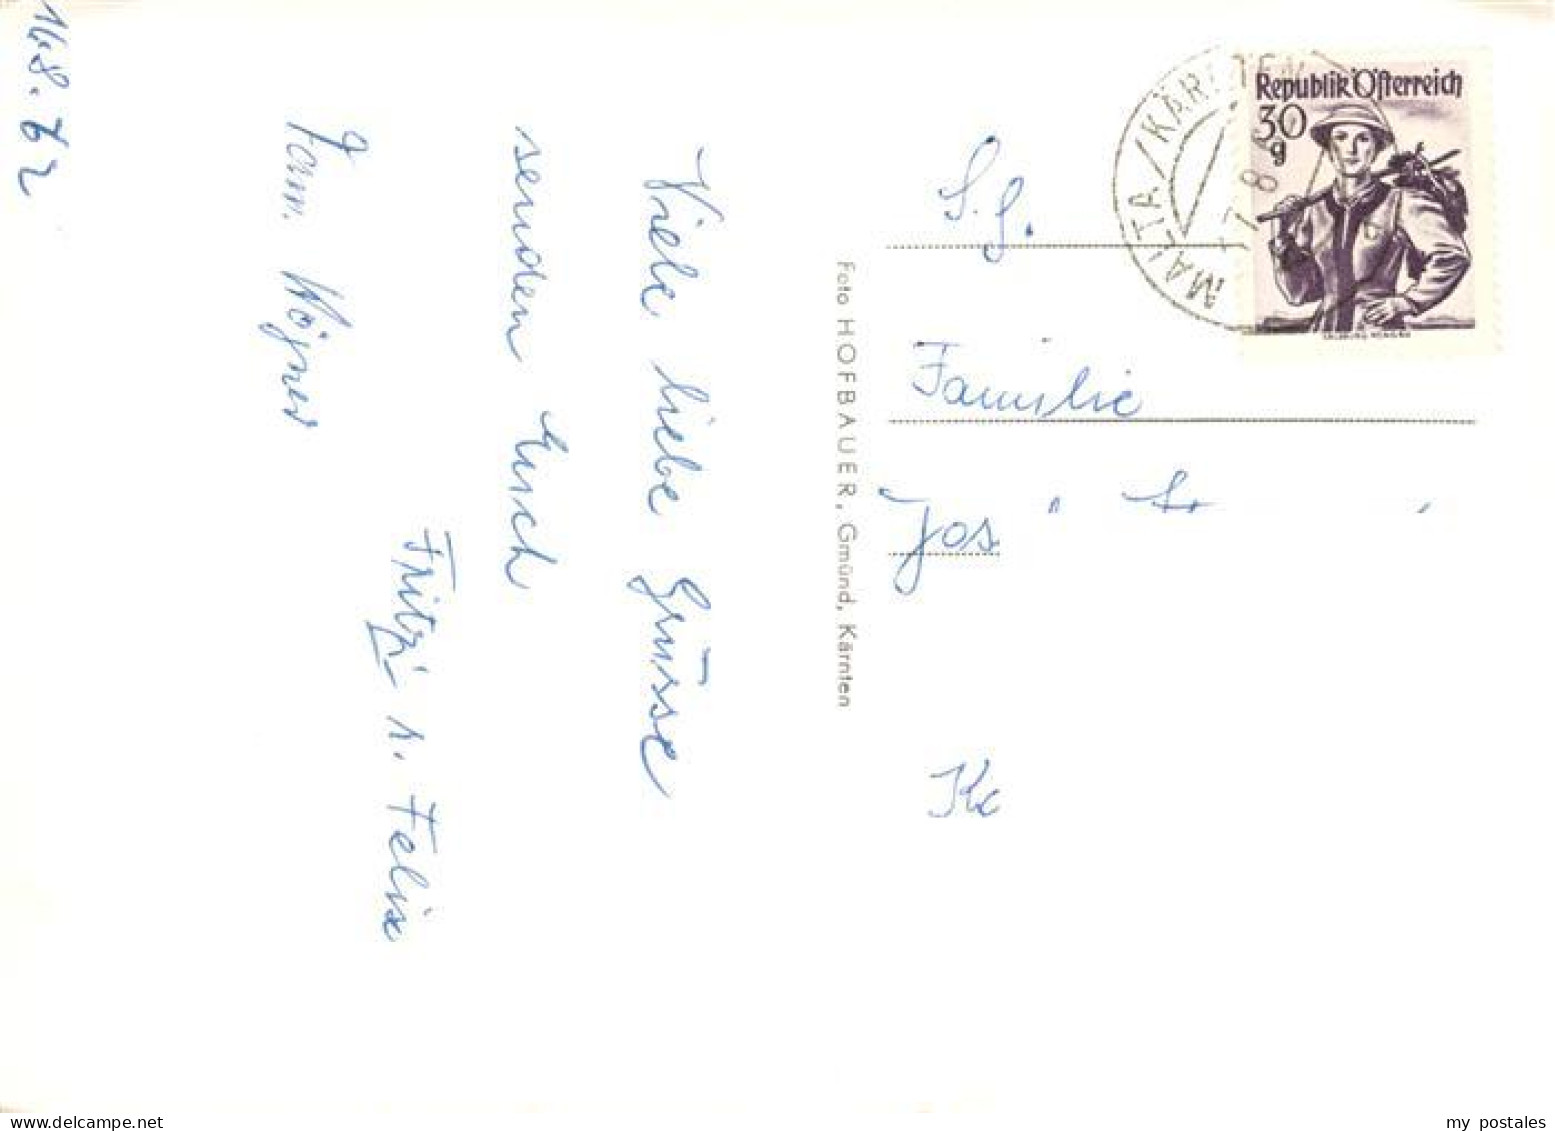 16.8.62
Viele liebe Grüsse
senden Euch
Fritzi u. Felix
Fam. Wögner
Foto HOFBAUER, Gmünd, Kärnten
MALTA/KÄRNTEN
17.8
Republik Österreich
30
g
S. g.
Familie
Jos
delcampe.net
my_postales